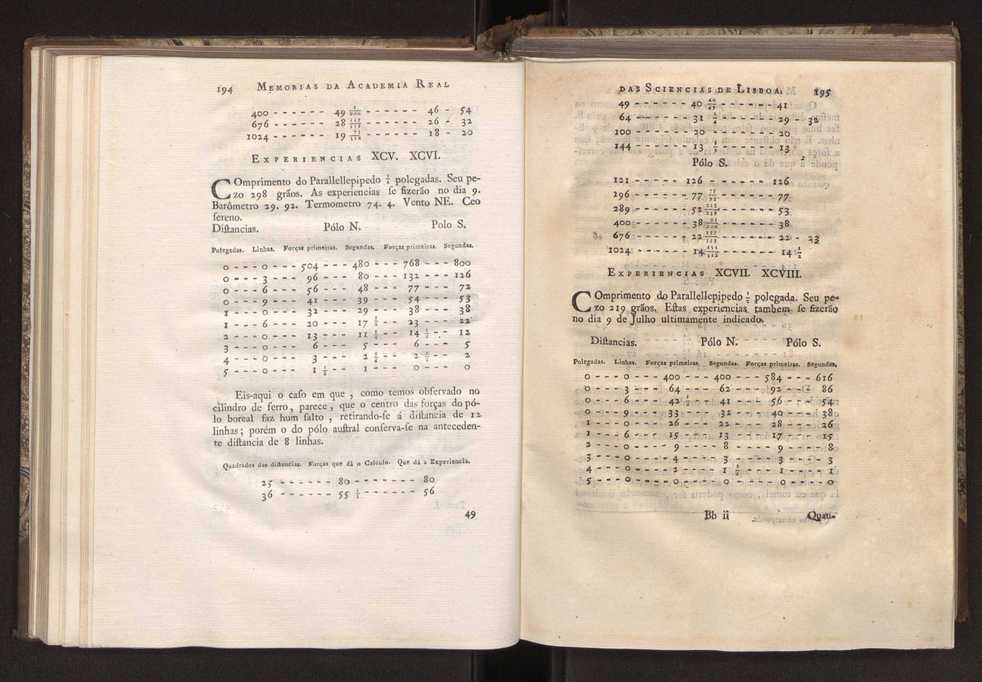 194 MEMORIAS DA ACADEMIA REAL
400 - - - - - - 49 - - - - - - 46 - 54
676 - - - - - - 28 - - - - - - 26 - 32
1024 - - - - - - 19 - - - - - - 18 - 20
EXPERIENCIAS XCV. XCVI.
COmprimento do Parallellepipedo polegadas. Seu pe-
zo 298 grãos. As experiencias se fizerão no dia 9.
Barômetro 29. 92. Termometro 74. 4. Vento NE. Ceo
sereno.
Distancias. Pólo N. Polo S.
Polegadas. Linhas. Forças primeiras. Segundas. Forças primeiras. Segundas.
0 - - - 0 - - - 504 - - - 480 - - - 768 - - - 800
0 - - - 3 - - - 96 - - - 80 - - - 132 - - - 126
0 - - - 6 - - - 56 - - - 48 - - - 77 - - - 72
0 - - - 9 - - - 41 - - - 39 - - - 54 - - - 53
1 - - - 0 - - - 32 - - - 29 - - - 38 - - - 38
1 - - - 6 - - - 20 - - - 17 - - - 23 - - - 22
2 - - - 0 - - - 13 - - - 11 - - - 14 - - - 12
3 - - - 0 - - - 6 - - - 5 - - - 6 - - - 5
4 - - - 0 - - - 3 - - - 2 - - - 2 - - - 2
5 - - - 0 - - - 1 ½ - - 1 - - - 0 - - - 0
Eis-aqui o caso em que , como temos observado no
cilindro de ferro, parece, que o centro das forças do pó-
lo boreal faz hum salto , retirando-se á distancia de 12
linhas; porém o do pólo austral conserva-se na anteceden-
te distancia de 8 linhas.
Quadrados das distancias. Forças que dá o Calculo. Que dá a Experiencia.
25 - - - - - - 80 - - - - - - - - 80
36 - - - - - - 55 - - - - - - - 56
49
DAS SCIENCIAS DE LISBOA. 195
49 - - - - - - 40 - - - - - - 41
64 - - - - - - 31 - - - - - - 29 - 32
100 - - - - - - 20 - - - - - - 20
144 - - - - - - 13 - - - - - - 13
Pólo S.
121 - - - - - 126 - - - - - - 126
196 - - - - - - 77 - - - - - - 77
289 - - - - - - 52 - - - - - - 53
400 - - - - - - 38 - - - - - - 38
676 - - - - - - 22 - - - - - - 22 - 23
1024 - - - - - - 14 - - - - - - 14 ½
EXPERIENCIAS XCVII. XCVIII.
COmprimento do Parallellepipedo polegada. Seu pe-
zo 219 grãos. Estas experiencias tambem se fizerão
no dia 9 de Julho ultimamente indicado.
Distancias. Pólo N. Pólo S.
Polegadas. Linhas. Forças primeiras. Segundas. Forças primeiras. Segundas.
0 - - - 0 - - - 400 - - - 400 - - - 584 - - - 616
0 - - - 3 - - - 64 - - - 62 - - - 92 - - - 86
0 - - - 6 - - - 42 ½ - - 41 - - - 56 - - - 54
0 - - - 9 - - - 33 - - - 32 - - - 40 - - - 38
1 - - - 0 - - - 26 - - - 22 - - - 28 - - - 26
1 - - - 6 - - - 15 - - - 13 - - - 17 - - - 15
2 - - - 0 - - - 9 - - - 8 - - - 9 - - - 8
3 - - - 0 - - - 4 - - - 3 - - - 3 - - - 3
4 - - - 0 - - - 2 - - - 1 ½ - - - 1 - - - 1
5 - - - 0 - - - 0 - - - 0 - - - 0 - - - 0
Bb ii Quan-